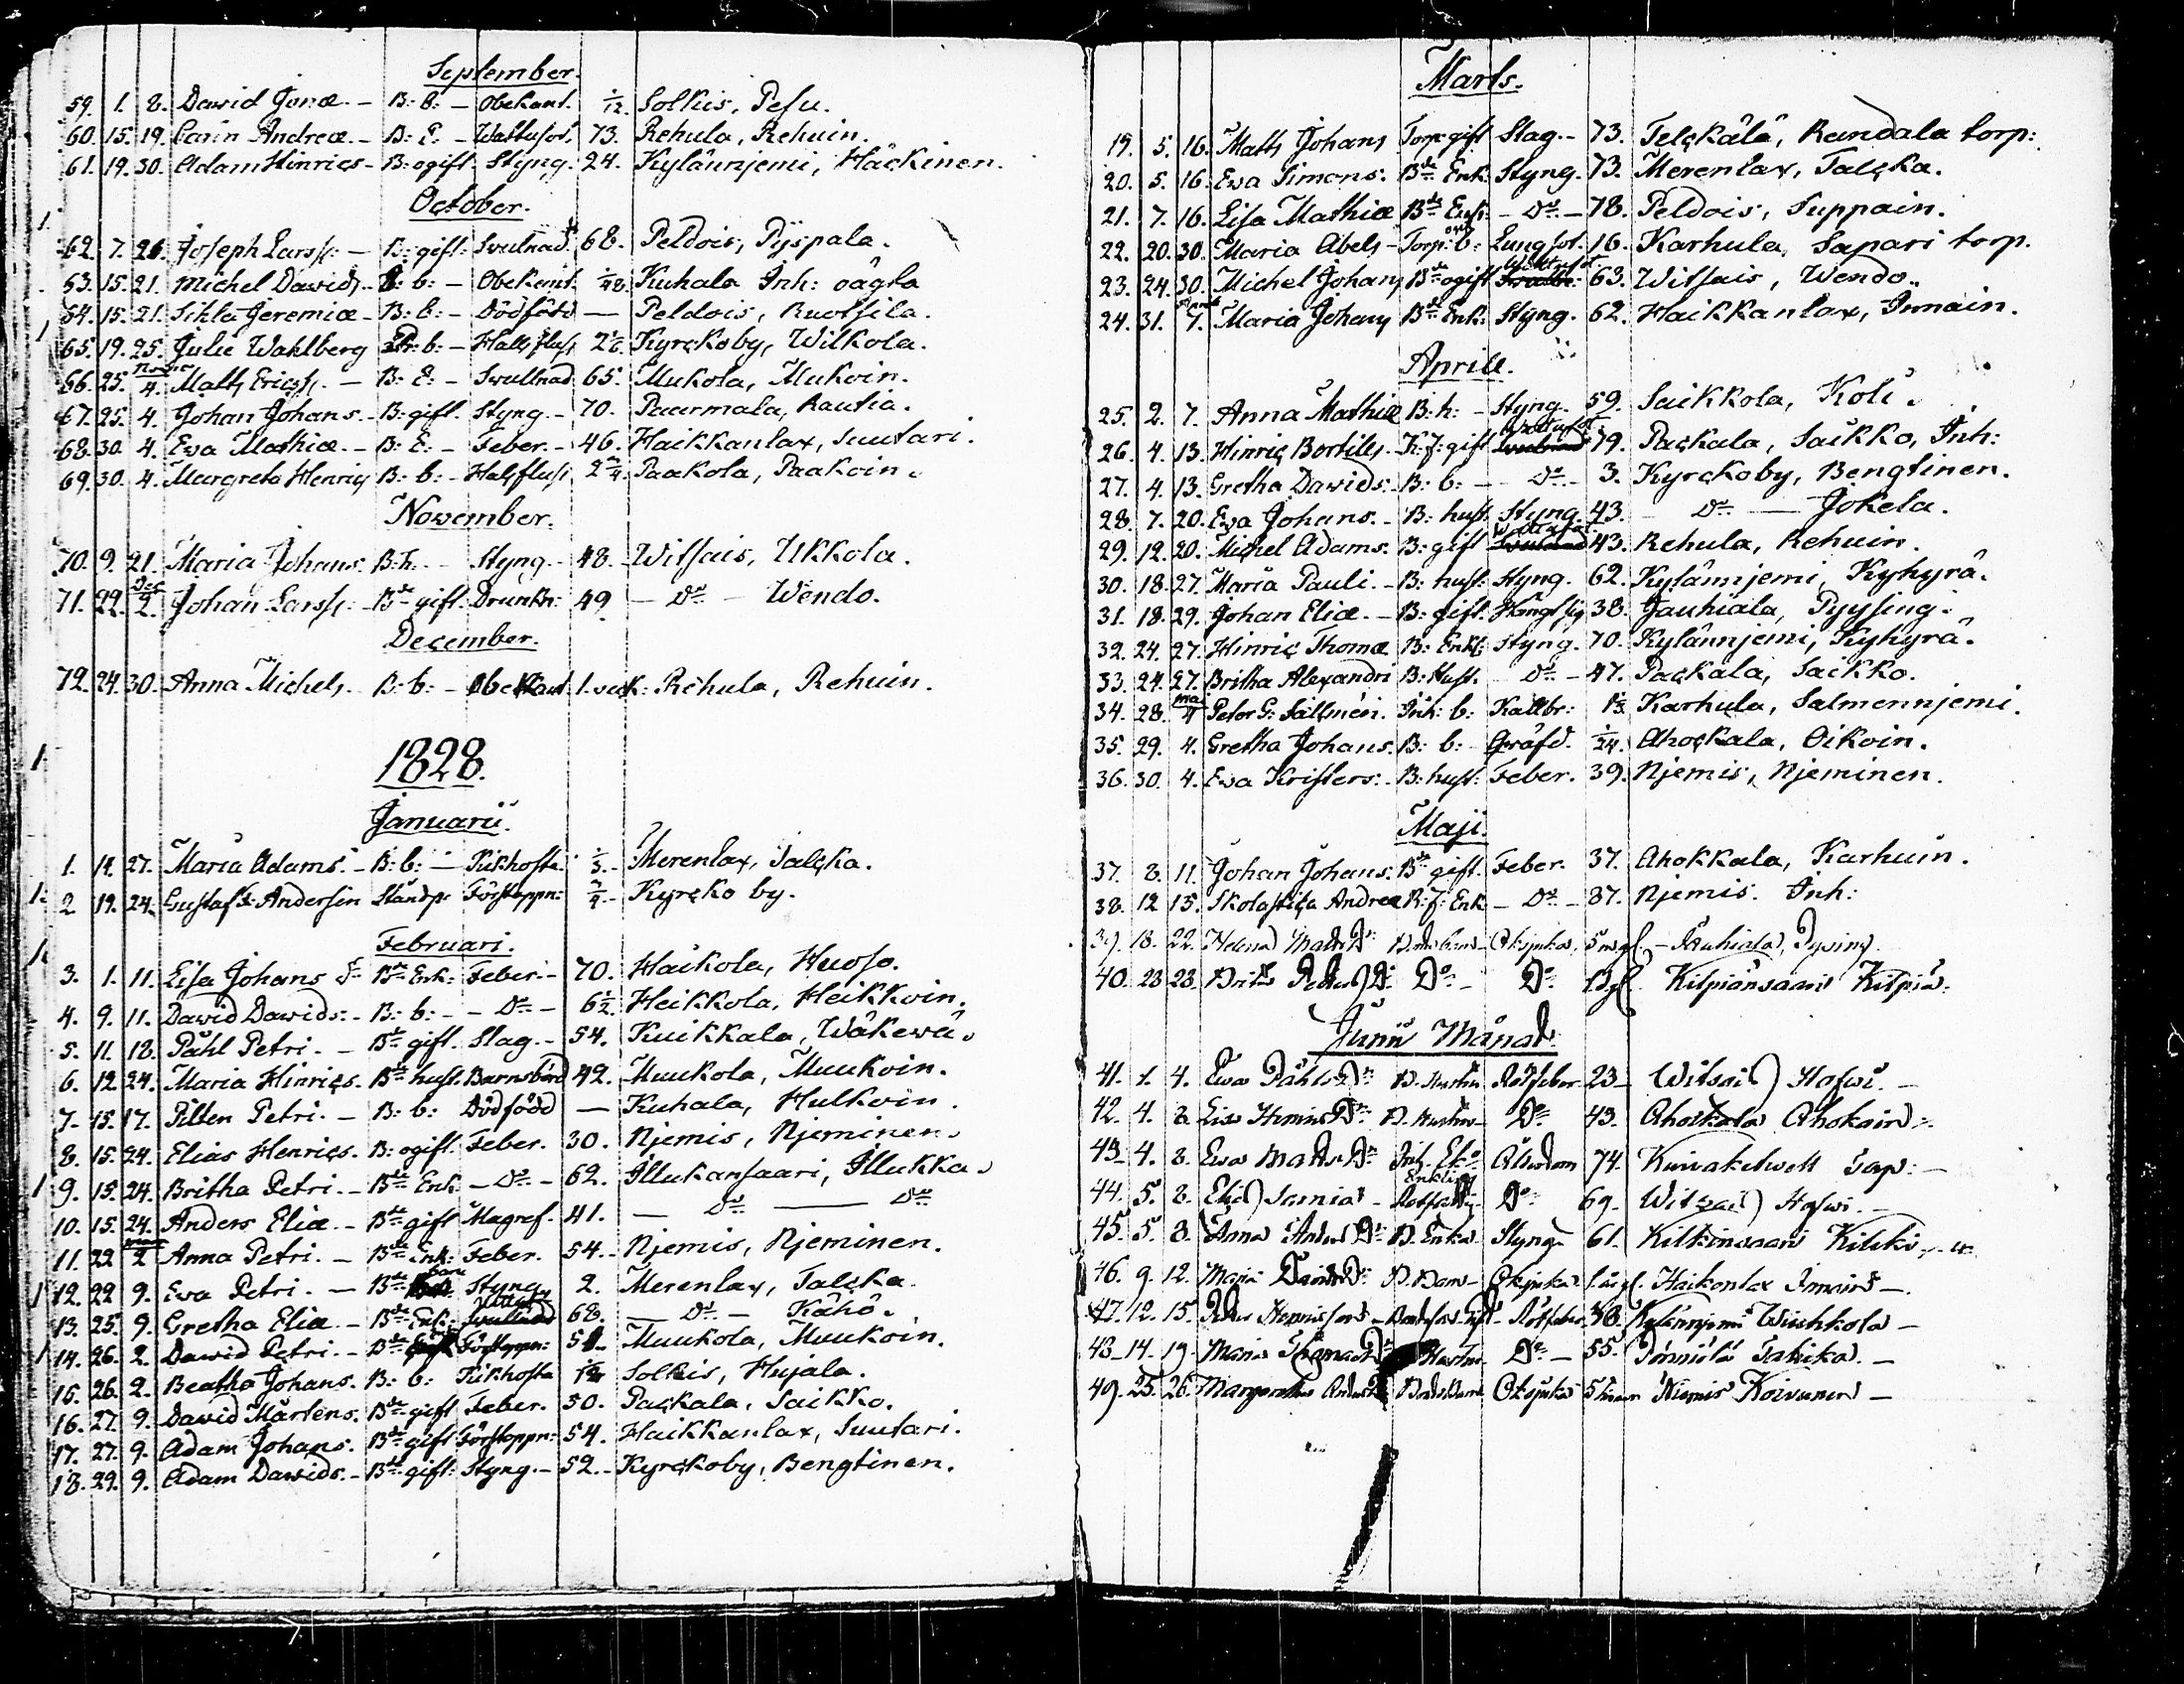 September.
59. 1. 8. David Jonæ. - B: b: - Obekant. 1/12 Solkis, Pesu.
60. 15. 19. Carin Andreæ. - B: E. - Wattusot. 73. Rehula, Rehuin.
61. 19. 30. Adam Hinrics - B: ogift. Styng. 24. Kylännjemi, Häckinen.
October.
62. 7. 21. Joseph Larss: - B: gift. Svullnad 68. Peldois, Pyspala.
63. 15. 21. Michel Davids. - B: b: - Obekant. 1/48. Kuhala Inh: oägta
64. 15. 21. Sikla Jeremiæ - B: b: - Dödfödd — Peldois, Ruotsila.
65. 19. 25. Julie Wahlberg b: - Halsfluss Kyrckoby, Wilkola.
66. 25. Novbr 4. Matts Ericss: - B: E: - Svullnad 65. Mukola, Mukoin.
67. 25. 4. Johan Johans. - B: gift. Styng. - 70. Paarmala, Rautia.
68. 30. 4. Eva Mathiæ. - B: E. - Feber. - 46. Haikkanlax, Suutari.
69. 30. 4. Margreta Henrics B: b: - Halsfluss 2 Paakola, Paakoin.
November.
70. 9. 21. Maria Johans. B: h. - Styng. - 48. Witsais, Ukkola.
71. 22. Dec 2. Johan Larss: - Bde gift. Drunkn: 49 — Do — Wendo.
December.
72. 24. 30. Anna Michels. - B: b: - Obekant. 1. veck: Rehula, Rehuin.
1828.
Januarii.
1. 12. 27. Maria Adams. - B: b: - Kikhosta 1/3. - Merenlax, Talcka.
2 19. 24. Gustaf F: Andersin Ståndp: Förstoppn: Kyrcko by.
Februari.
3. 1. 11. Lisa Johans Dr Bde Enk: Feber. - 70. Haikola, Huoso.
4. 9. 11. David Davids: - B: b: - - Do - 6 1/2. Heikkola, Heikkoin.
5. 11. 18. Påhl Petri. - Bde gift. Slag. - 54. Kuikkala, Wäkevä.
6. 12. 24. Maria Hinrics. Bde hust. Barnsbörd 42. Muukola, Muukoin.
7. 15. 17. Pilten Petri. - B: b: Dödfödd — Kuhala, Hulkoin.
8. 15. 24. Elias Henrics. B: ogift. Feber. 30. Njemis, Njeminen.
9. 15. 24. Britha Petri. - Bde Enk - Do - 62. Illukansaari, Illukka.
10. 15. 24. Anders Eliæ. - Bde gift Magref. 41. — Do — Do
11. 22. Mars 2 Anna Petri. - Bde Enk: Feber. 54. - Njemis, Njeminen.
12. 22 9. Eva Petri. - Bde barn Styng 2. Merenlax, Talcka.
13. 25. 9. Gretha Eliæ. - Bde Enk: Svullnad 68. — Do — Kähö.
14. 26. 2. David Petri. - Bde Förstoppn: Muukola, Muukoin.
15. 26. 2. Beatha Johans. B: b: Kikhosta Solkis, Hujala.
16. 27. 9. David Mårtens. Bde gift Feber. 50. Packala, Saikko.
17. 27. 9. Adam Johans. Bde gift Förstoppn: 54. Haikkanlax, Suutari.
18. 29. 9. Adam Davids. - Bde gift: Styng. - 52. - Kyrckoby, Bengtinen.
Marts.
19. 5. 16. Matts Johans Torp: gift Slag. - 73. Telckälä, Randala torp:
20. 5. 16. Eva Simons. Bde Enk: Styng. 73. Merenlax, Talcka.
21. 7. 16. Lisa Mathiæ Bde Enk: - Do - 78. Peldois, Suppain.
22. 20. 30. Maria Abels - Torp: b: Lungsot. 16. Karhula, Sapari torp.
23. 24. 30. Michel Johans Bde ogift Wattusot. 63. Witsais, Wendo.
24. 31. 7. Maria Johans Bde Enk: Styng. 62. Haikkanlax, Inmain.
Aprill.
25. 2. 7. Anna Mathiæ B: h: - Styng. 59. Saikkola, Koli.
26. 4. 13. Hinric Bertills. K: J: gift Wattusot 79. Packala, Saikko, Inh:
27. 4. 13. Gretha Davids: - B: b: - Do - 3. Kyrckoby, Bengtinen.
28. 7. 20. Eva Johans. - B: hust. Styng. 43. — Do — Jokela.
29. 12. 20. Michel Adams. B: gift Wattusot 43. Rehula, Rehuin.
30. 18. 27. Maria Pauli. - B: hust: Styng. 62. Kylännjemi, Kyhyrä.
31. 18. 29. Johan Eliæ. - B: gift. Hängt sig 38. Jauhiala, Pyysing.
32. 24. 27. Hinric Thomæ B: Enkl: Styng. 70. Kylännjemi, Kyhyrä.
33. 24. 27. Britha Alexandri B: Hust. - Do - 47. Packala, Säckko.
34. 28. Maj 4 Peter G: Sallmén. Inh: b: Kallbr: Karhula, Salmennjemi.
35. 29. 4. Gretha Johans. B: b: 1/24. Ahockala, Oikoin.
36. 30. 4. Eva Kristers: B: hust: Feber. 39. Njemis, Njeminen.
Maji.
37. 8. 11. Johan Johans: Bde gift. Feber. 37. Ahokkala, Karhuin.
38. 12 15. Skolastica Andreæ K: J: Enk - Do - 87. Njemis. Inh:
39. 18. 22. Helena Matts Dr Oksjuka, Jauhiala, Pysing.
40. 23 28. Petters Dr Do - Do Kilpiänsaari Kilpiä.
Junii Månad.
41. 1. 4. Eva Påhls Dr B. Hustru Rötfeber 23 - Witsais Hafwi. -
42. 4. 8. Lisa Dr B. Hustru Do 43. Ahokkala Ahokain.
43. 4. 8. Eva Matts Dr Inh. Ålderdom 74. Torp: -
44. 5. 8. Enkling Do 69. Witsais Hafwi. -
45. 5. 8. Anna Anders Dr B. Enka Styng 61. Kilkinsaari Kilcki
46. 9. 12. Maria Davids Dr B. Barn - Oksjuka Haikanlax Imain -
47. 12. 15. Rötfeber 38. Kylännjemi Wiuhkola -
48 - 14. 19. Maria Thomas Dr Hustru Do - 55. -
49. 25. 26. Margaretha Anders Oksjuka Niemis Koivunen -